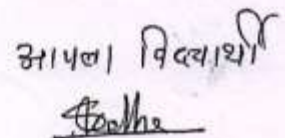 आपला विद्यार्थी